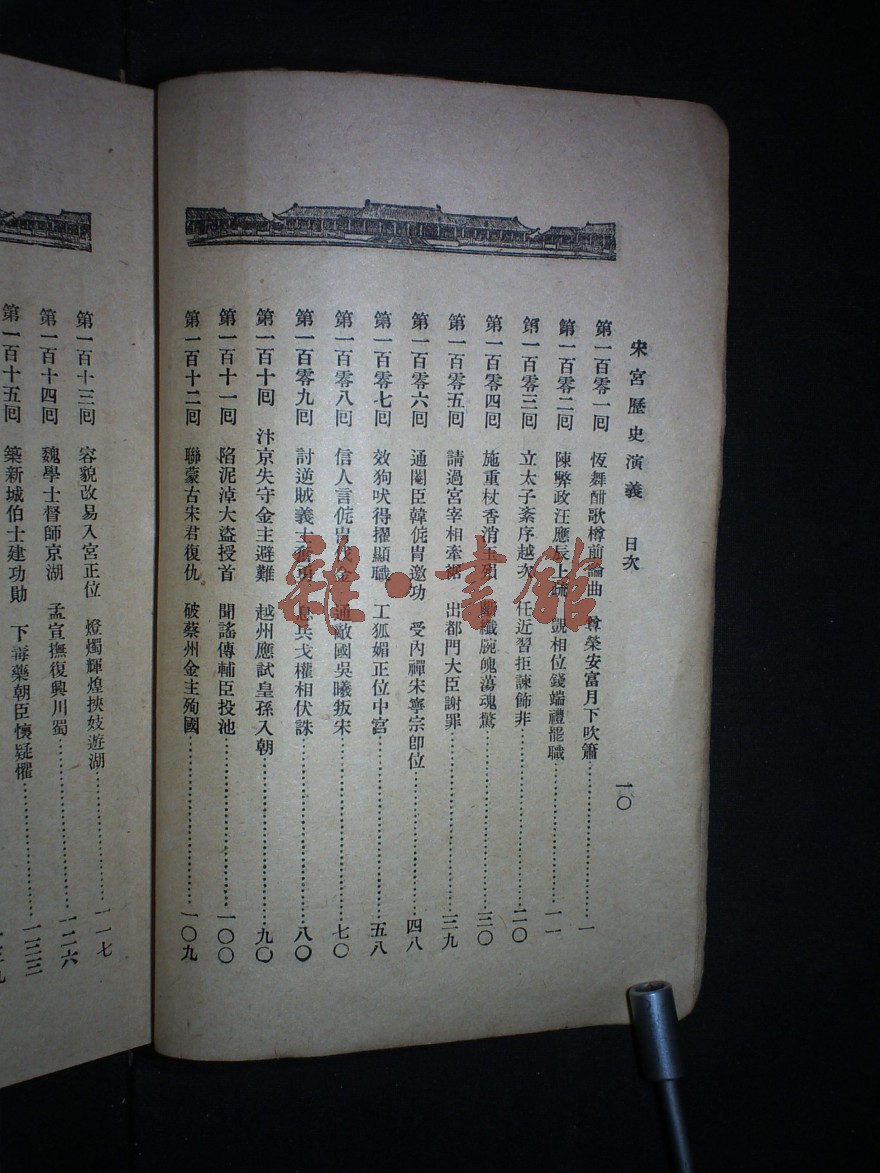 宋宮歷史演義 目次 一〇
第一百零一囘 恆舞酣歌樽前論曲 尊榮安富月下吹簫 一
第一百零二囘 陳弊政汪應辰上疏 覬相位錢端禮罷職 一一
第一百零三囘 立太子紊序越次 任近習拒諫飾非 二〇
第一百零四囘 施重杖香消玉殞 斷纖腕魄蕩魂驚 三〇
第一百零五囘 請過宮宰相牽裾 出都門大臣謝罪 三九
第一百零六囘 通閫臣韓侂胄邀功 受內禪宋寧宗卽位 四八
第一百零七囘 效狗吠得擢顯職 工狐媚正位中宮 五八
第一百零八囘 信人言侂胄伐金 通敵國吳曦叛宋 七〇
第一百零九囘 討逆賊義士奮勇 息兵戈權相伏誅 八〇
第一百十囘 汴京失守金主避難 越州應試皇孫入朝 九〇
第一百十一囘 陷泥淖大盜授首 聞謠傳輔臣投池 一〇〇
第一百十二囘 聯蒙古宋君復仇 破蔡州金主殉國 一〇九
第一百十三囘 容貌改易入宮正位 燈燭輝煌挾妓遊湖 一一七
第一百十四囘 魏學士督師京湖 孟宣撫復興川蜀 一二六
第一百十五囘 築新城伯士建功勛 下毒藥朝臣懷疑懼 一三三
雜·書館